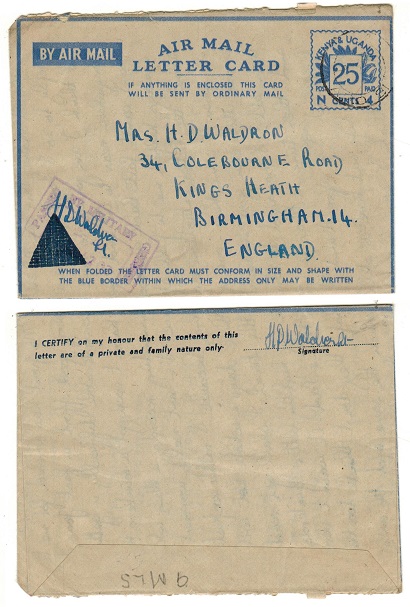 BY AIR MAIL
AIR MAIL
LETTER CARD
IF ANYTHING IS ENCLOSED THIS CARD
WILL BE SENT BY ORDINARY MAIL
KENYA & UGANDA
25
POST PAID
CENTS
MRS. H. D. WALDRON
34, COLEBOURNE ROAD
KINGS HEATH
BIRMINGHAM. 14.
ENGLAND.
H D Waldron
Lt.
WHEN FOLDED THE LETTER CARD MUST CONFORM IN SIZE AND SHAPE WITH
THE BLUE BORDER WITHIN WHICH THE ADDRESS ONLY MAY BE WRITTEN
I CERTIFY on my honour that the contents of this
letter are of a private and family nature only.
H D Waldron Lt
Signature